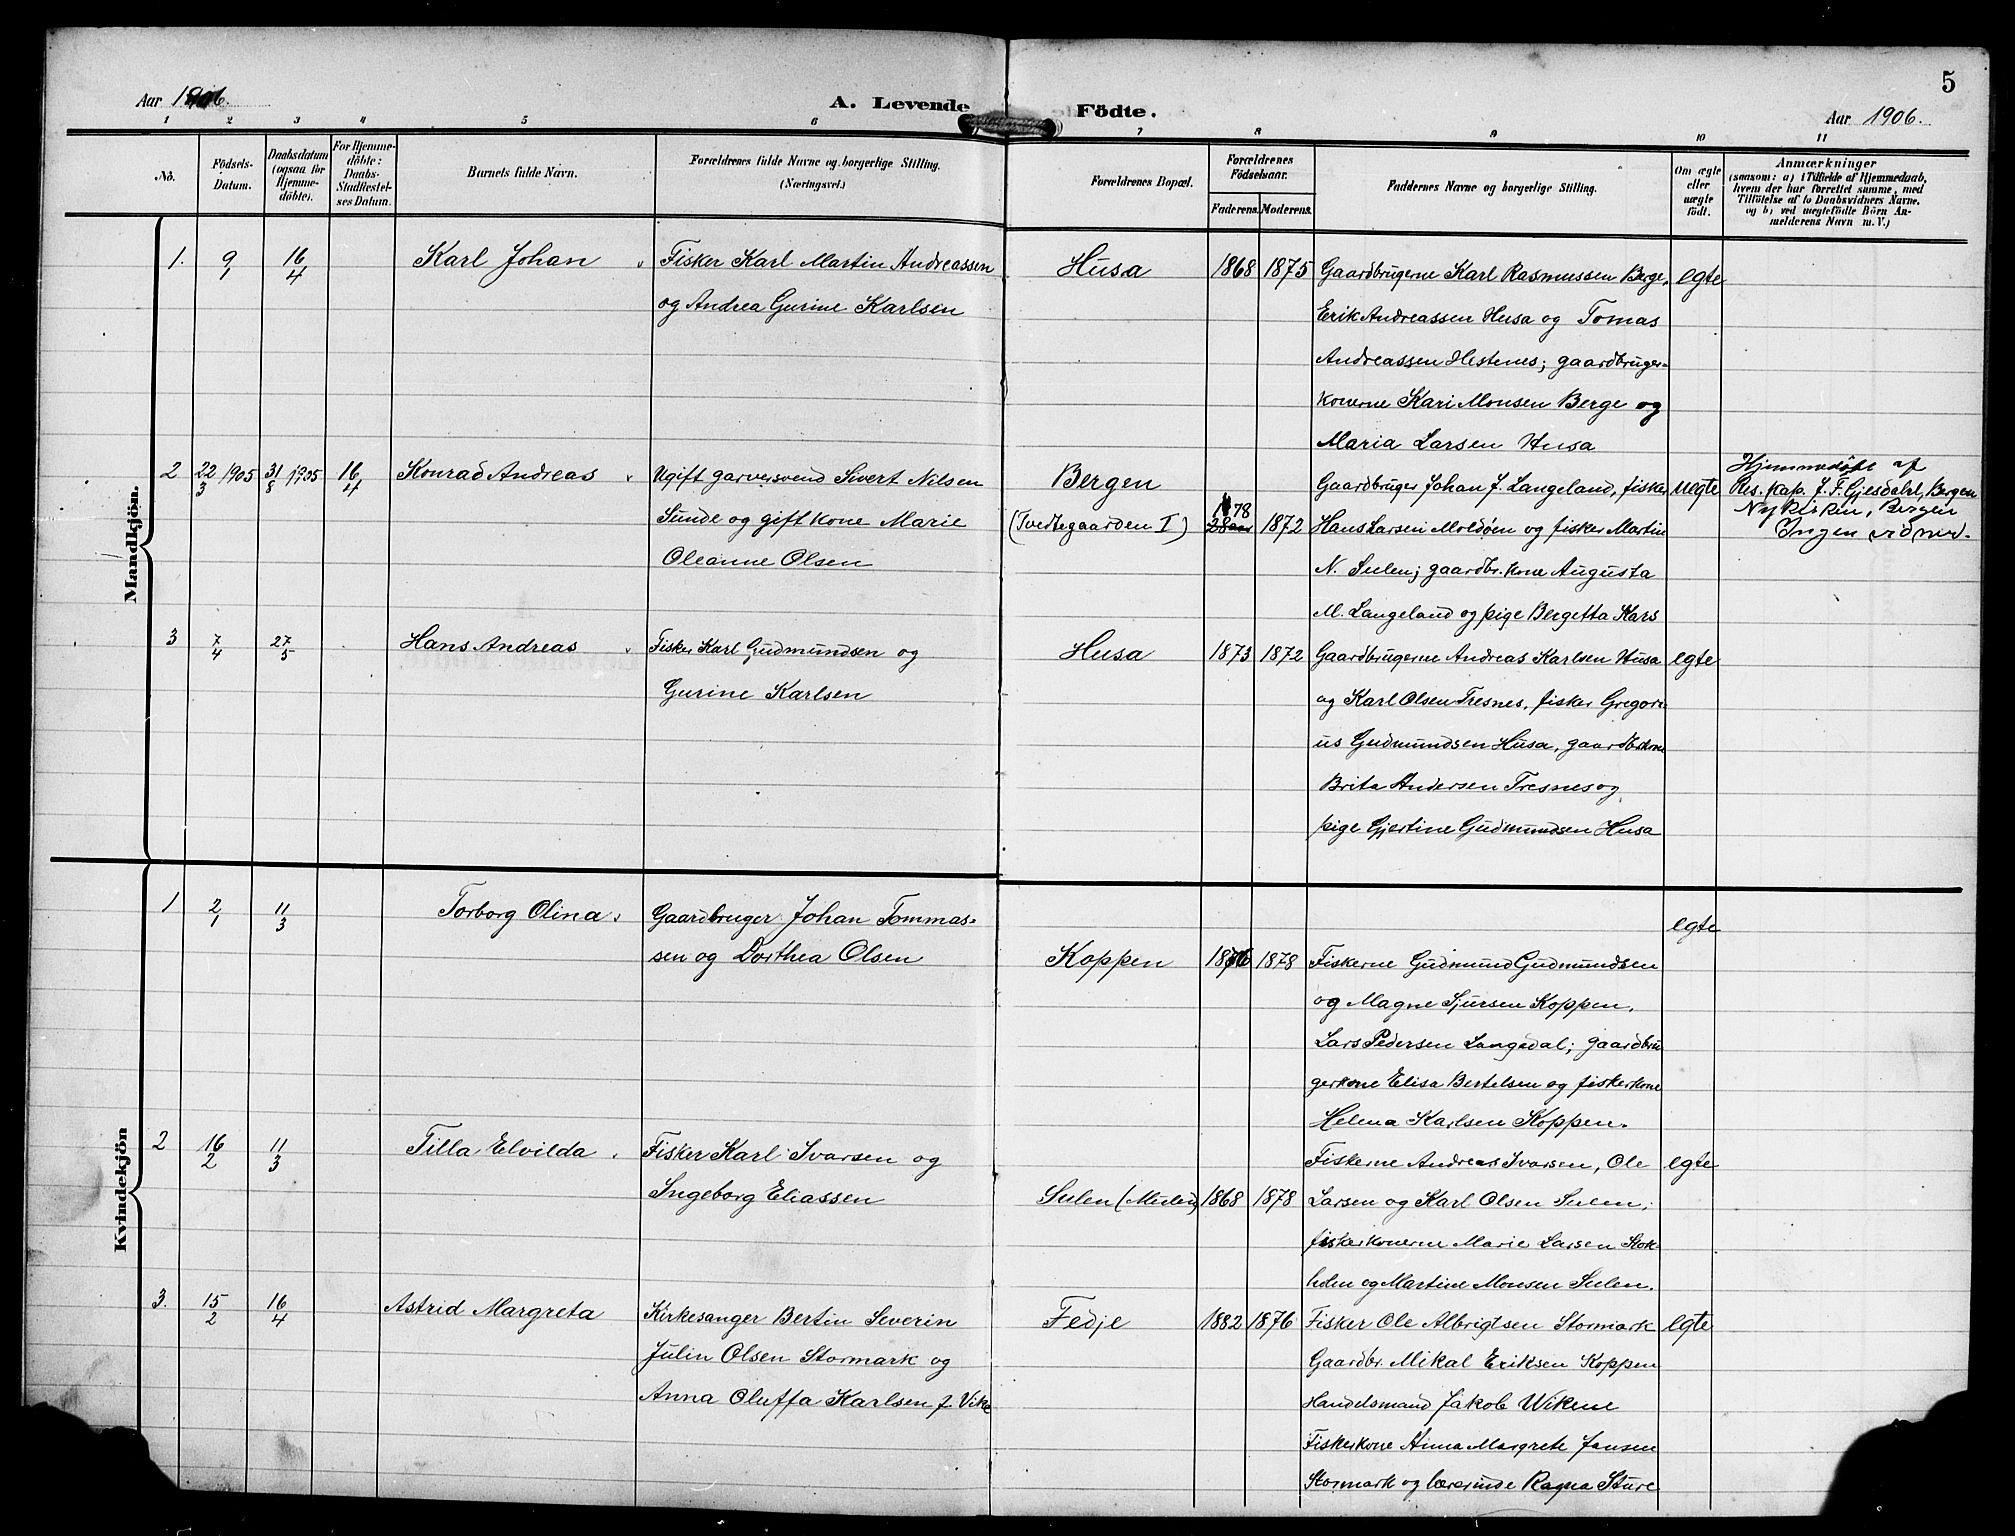 5
Aar 1906.
A. Levende Födte.
Aar 1906.
1 2 3 4 5 6 7 8 9 10 11
No.
Födsels-
Datum.
Daabsdatum
(ogsaa for
Hjemme-
döbte).
For Hjemme-
döbte:
Daabs-
Stadfæstel-
ses Datum.
Barnets fulde Navn.
Forældrenes fulde Navne og borgerlige Stilling.
(Næringsvei.)
Forældrenes Bopæl.
Forældrenes
Födselsaar.
Faderens. Moderens.
Faddernes Navne og borgerlige Stilling.
Om ægte
eller
uægte
födt.
Anmærkninger
(saasom: a) i Tilfælde af Hjemmedaab,
hvem der har forrettet samme, med
Tilföielse af to Daabsvidners Navne,
og b) ved uægtefödte Börn An-
melderens Navn m. V.)
Mandkjön.
1. 9/1 16/4 Karl Johan Fisker Karl Martin Andreassen Husa 1868 1875 Gaardbrugerne Karl Rasmussen Berge, egte
og Andrea Gurine Karlsen Erik Andreassen Husa og Tomas
Andreassen Hestenes; gaardbruger-
konerne Kari Monsen Berge og
Maria Larsen Husa
2 22/3 1905 31/8 1905 16/4 Konrad Andreas Ugift garversvend Sivert Nilsen Bergen Gaardbruger Johan J. Langeland, fisker uegte Hjemmedöbt af
Res. kap. J. F. Gjesdahl, Bergen
Sunde og gift kone Marie (Tvedtegaarden I) 1878 28 aar 1872 Hans Larsen Moldöen og fisker Martin Nykirken, Bergen
Ingen vidner.
Oleanne Olsen N. Sulen; gaardbr. kone Augusta
M. Langeland og pige Bergetta Kars
3 7/4 27/5 Hans Andreas Fisker Karl Gudmundsen og Husa 1873 1872 Gaardbrugerne Andreas Karlsen Husa egte
Gurine Karlsen og Karl Olsen Tresnes, fisker Gregori-
us Gudmundsen Husa, gaardbrkone
Brita Andersen Tresnes og
pige Gjertine Gudmundsen Husa
Kvindekjön
1 2/1 11/3 Torborg Olina Gaardbruger Johan Tommas- egte
sen og Dorthea Olsen Koppen 1876 1878 Fiskerne Gudmund Gudmundsen
og Magne Sjursen Koppen,
Lars Pedersen Langedal; gaardbru
gerkone Elisa Bertelsen og fiskerkone
Helena Karlsen Koppen.
2 16/2 11/3 Tilla Elvilda Fisker Karl Ivarsen og Fiskerne Andreas Ivarsen, Ole egte
Ingeborg Eliassen Sulen 1868 1878 Larsen og Karl Olsen Sulen;
fiskerkonerne Marie Larsen Stok-
leden og Martine Monsen Sulen.
3. 15/2 16/4 Astrid Margreta Kirkesanger Bertin Severin Fedje 1882 1876 Fisker Ole Albrigtsen Stormark egte
Julin Olsen Stormark og Gaardbr. Mikal Eriksen Koppen
Anna Oluffa Karlsen f. Vike Handelsmand Jakob Wikene
Fiskerkone Anna Margrete Jansen
Stormark og lærerinde Ragna Sture